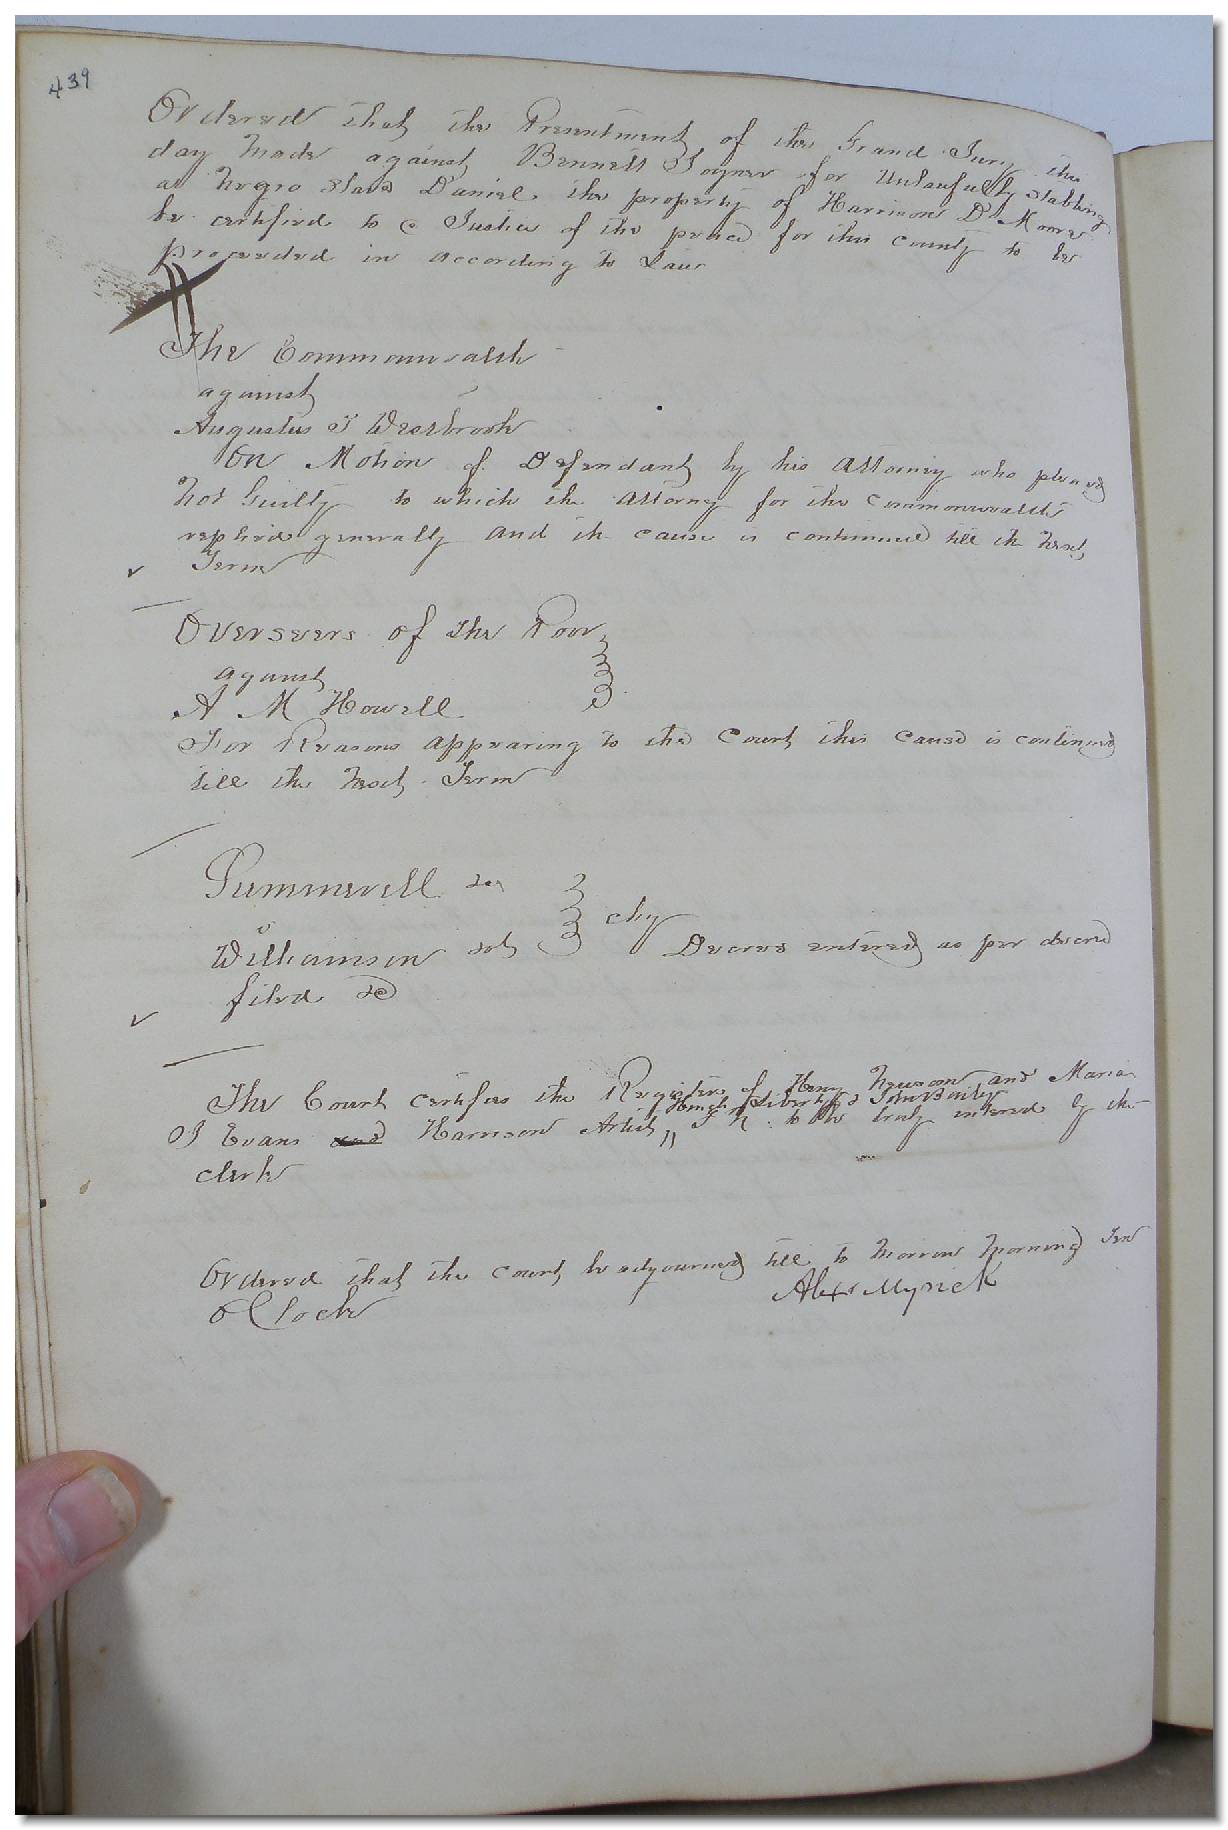 439
Ordered that the Presentment of the Grand Jury this
day made against Bennett Joyner for Unlawfully stabbing
a Negro slave Daniel the property of Harrison D Moore
be certified to a Justice of the peace for this county to be
proceeded in according to Law
The Commonwealth
against
Augustus J Westbrook
On Motion of Defendant by his Attorney who pleaded
Not Guilty to which the Attorney for the Commonwealth
replied generally and the cause is continued till the next
Term
Overseers of the Poor
against
A M Howell
For Reasons appearing to the Court this cause is continued
till the next Term
Summerell
v
Williamson
chy Decree entered as per decree
filed
The Court certifies the Registers of Henry Newsom and Maria
J Evans and Harrison Artist, John to be truly entered by the
clerk
Ordered that the court be adjourned till to morrow morning Ten
O Clock
Alexr Myrick